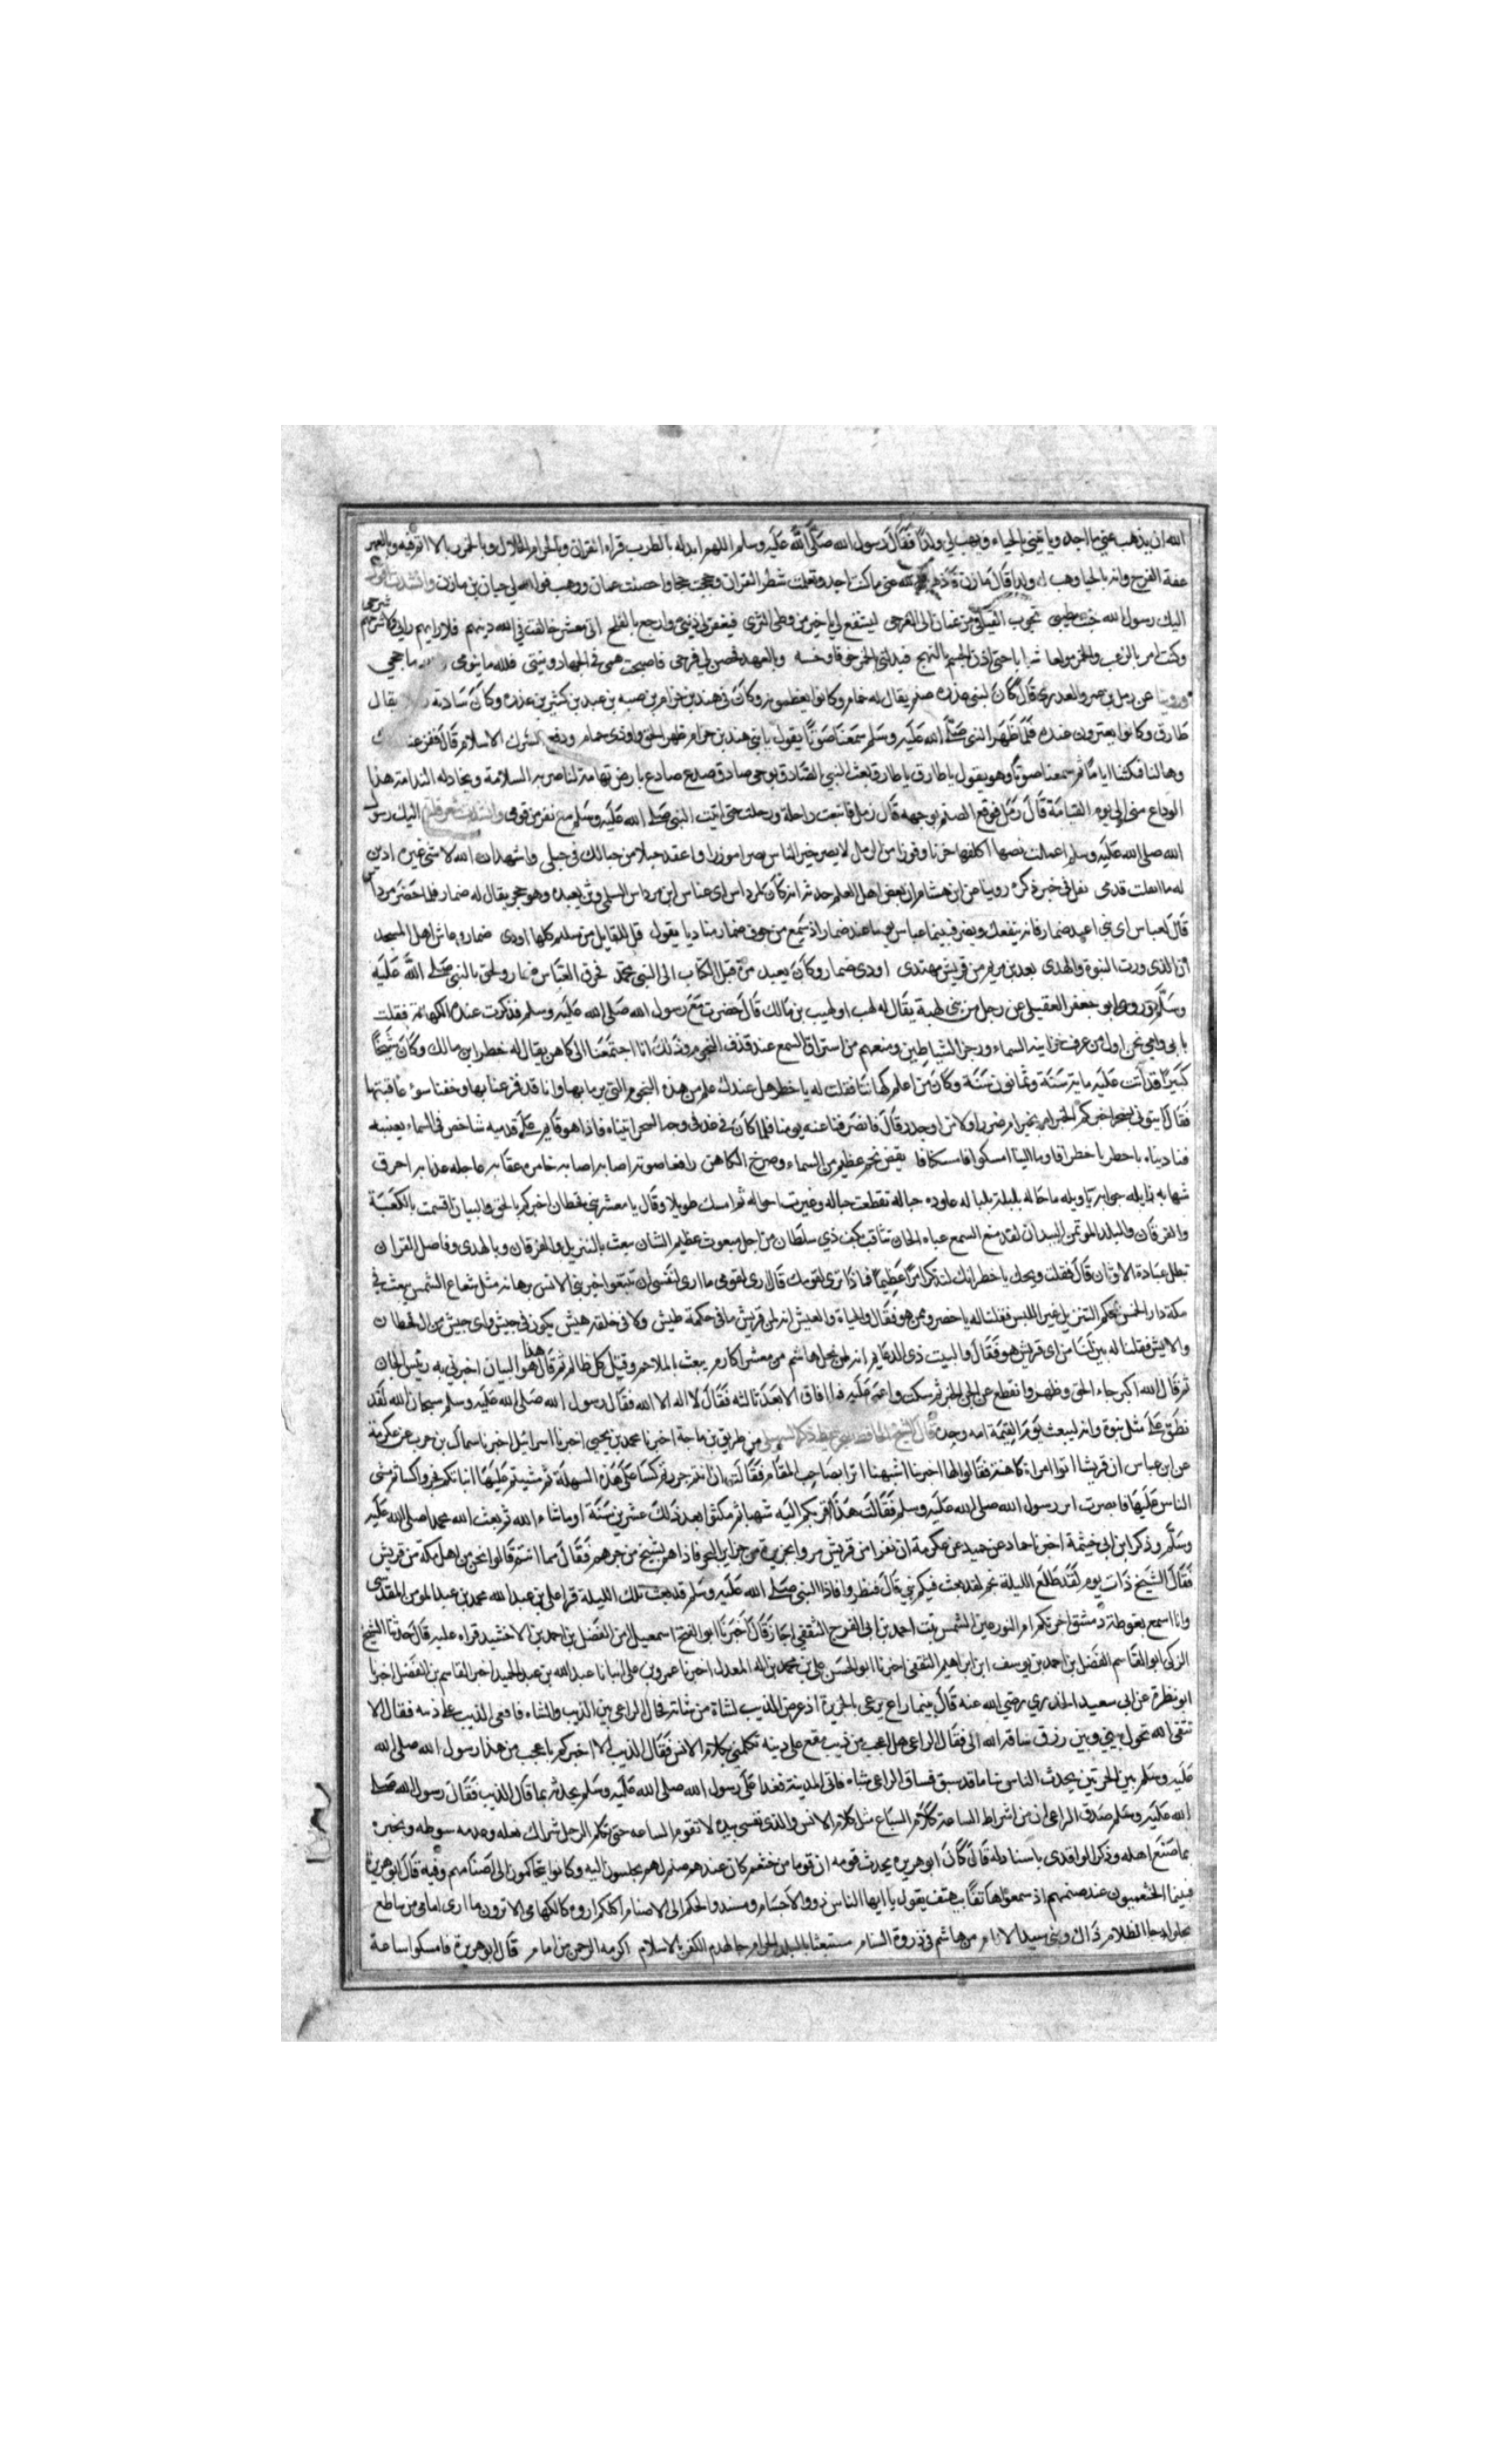 الله ان يذهب عني ما اجد ويأتيني بالحياء ويهب لي ولدا فقال رسول الله صلى الله عليه وسلم اللهم ابدله بالطرب قراءة القران وبالحرام الحلال وبالخمر
عفة الفرج واته بالحيا وهب له ولدا قال مازن فاذهب الله عني ما كنت اجد وتعلمت شطر القران وحججت حججا واحصنت عمان ووهب الله لي حيان بن مازن وانشدت
اليك رسول الله خبت مطيتي تجوب الفيافي من عمان الى العرج ليشفع لي يا خير من وطئ الثرى فيغفر لي ذنبي وارجع بالفلج الى معشر خالفت في الله دينهم فلا رايهم رايي
وكنت امرا بالزعب والخمر مولعا شبابي حتى اذن الجسم بالنهج فبدلني بالخمر خوفا وخشية وبالعهر احصن لي فرجي فاصبحت همي في الجهاد ونيتي فلله ما صومي
وروينا عن زمل بن عمرو العذري قال كان لبني عذره صنم يقال له خمام وكانوا يعظمونه وكان في هند بن حرام بن ضبه بن عبد بن كثير بن عذره وكان سادنه يقال
طارق وكانوا يعترون عنده فلما ظهر النبي صلى الله عليه وسلم سمعنا صوتا يقول يا بني هند بن حرام ظهر الحق واودى حمام ودفع الشرك الاسلام قال ففزعنا
وهالنا فمكثنا اياما ثم سمعنا صوتا وهو يقول يا طارق يا طارق بعث النبي الصادق بوحي صادق صدع صادع بارض تهامة لناصريه السلامة وبخاذله الندامة هذا
الوداع مني الى يوم القيامة قال زمل فوقع الصنم لوجهه قال زمل فابتعت راحلة ورحلت حتى اتيت النبي صلى الله عليه وسلم مع نفر من قومي وانشدته اليك رسول
الله صلى الله عليه وسلم اعملت نصها اكلفها حزنا وفوزا من الرمل لانصر خير الناس نصرا موزرا واعقد حبلا من حبالك في حبلي واشهد ان الله لا شي غيره ادين
له ما اثقلت قدمي نعلي في خبر ذكره روينا عن ابن هشام ان بعض اهل العلم حدثه انه كان لمرداس ابي عباس ابن مرداس السلمي وثن يعبده وهو حجر يقال له ضمار فلما حضر مرداس
قال لعباس اي بني اعبد ضمار فانه ينفعك ويضرك فبينما عباس يوما عند ضمار اذ سمع من جوف ضمار مناديا يقول قل للقبايل من سليم كلها اودى ضمار وعاش اهل المسجد
ان الذي ورث النبوة والهدى بعد بن مريم من قريش مهتدى اودى ضمار وكان يعبد مرة قبل الكتاب الى النبي محمد فحرق العباس ضمار ولحق بالنبي صلى الله عليه
وسلم وروى ابو جعفر العقيلي عن رجل من بني لهب يقال له لهب او لهيب بن مالك قال حضرت مع رسول الله صلى الله عليه وسلم فذكرت عنده الكهانة فقلت
بابي وامي نحن اول من عرف حراسة السماء وزجر الشياطين ومنعهم من استراق السمع عند قذف النجوم وذلك انا اجتمعنا الى كاهن يقال له خطر ابن مالك وكان شيخا
كبيرا قد اتت عليه مايتا سنة وثمانون سنة وكان من اعلم كهاننا فقلت له يا خطر هل عندك علم من هذه النجوم التي يرما بها وانا قد فزعنا بها وخفنا سوء عاقبتها
فقال ايتوني بسحر اخبركم الخبر ام بخير ام ضرر او لامن او حذر قال فانصرفنا عنه يومنا فلما كان في غد في وجه السحر اتيناه فاذا هو قايم على قدميه شاخص في السماء بعينيه
فناديناه يا خطر يا خطر فاوما الينا امسكوا فامسكنا فانقض نجم عظيم من السماء وصرخ الكاهن رافعا صوته اصابه اصابه خامره عقابه عاجله عذابه احرقه
شهابه زايله جوابه يا ويله ما حاله بلبله بلباله عاوده خباله تقطعت حباله وغيرت احواله ثم امسك طويلا وقال يا معشر بني قحطان اخبركم بالحق والبيان اقسمت بالكعبة
والاركان والبلد الموتمن السدان لقد منع السمع عتاة الجان بثاقب بكف ذي سلطان من اجل مبعوث عظيم الشان يبعث بالتنزيل والفرقان وبالهدى وفاصل القران
تبطل عبادة الاوثان قال فقلت ويحك يا خطر انك لتذكر امرا عظيما فماذا ترى لقومك قال ارى لقومي ما ارى لنفسي ان تتبعوا خير بني الانس برهانه مثل شعاع الشمس يبعث في
مكة دار الحمس بمحكم التنزيل غير اللبس فقلنا له يا خطر وممن هو فقال والحياة والعيش انه لمن قريش ما في حكمه طيش ولا في خلقه هيش يكون في جيش واي جيش من ال قحطان
وال ايش فقلنا له بين لنا من اي قريش هو فقال والبيت ذي الدعايم انه لمن نجل هاشم من معشر اكارم يبعث بالملاحم وقتل كل ظالم ثم قال هذا هو البيان اخبرني به رئيس الجان
ثم قال الله اكبر جاء الحق وظهر وانقطع عن الجن الخبر ثم سكت واغمي عليه فما افاق الا بعد ثالثه فقال لا اله الا الله فقال رسول الله صلى الله عليه وسلم سبحان الله لقد
نطق عن مثل نبوة وانه ليبعث يوم القيمة امه وحده قال الشيخ الحافظ من طريق بن ماجة اخبرنا محمد بن يحيى اخبرنا اسرائيل اخبرنا سماك بن حرب عن عكرمة
عن ابن عباس ان قريشا اتوا امراة كاهنة فقالوا لها اخبرينا اشبهنا اثرا بصاحب المقام فقالت ان انتم جررتم كسا على هذه السهلة ثم مشيتم عليها انباتكم فجروا كسا ثم مشى
الناس عليها فابصرت اثر رسول الله صلى الله عليه وسلم فقالت هذا اقربكم اليه شبها ثم مكثوا بعد ذلك عشرين سنة او ما شاء الله ثم بعث الله محمدا صلى الله عليه
وسلم وذكر ابن ابي خيثمة اخبرنا حماد عن حميد عن عكرمة ان نفرا من قريش مروا بجزيرة من جزاير البحر فاذا هم بشيخ من جرهم فقال مما انتم قالوا نحن من اهل مكة من قريش
فقال الشيخ ذات يوم لقد طلع الليلة نجم لقد بعث فيكم نبي قال فنظروا فاذا النبي صلى الله عليه وسلم قد بعث تلك الليلة قرا علي بن عبد الله محمد بن عبد المومن المقدسي
وانا اسمع بغوطة دمشق اخبرتكم ام النور عين الشمس بنت احمد بن ابي الفرج الثقفي اجازة قال اخبرنا ابو الفتح اسمعيل بن الفضل بن احمد بن الاخشيد قراه عليه قال حدثنا الشيخ
الزكي ابو القاسم الفضل بن احمد بن يوسف ابن ابراهيم الثقفي اخبرنا ابو الحسن علي بن محمد المعدل اخبرنا عمرو بن علي انبانا عبد الله بن عبد الحميد اخبر القاسم بن الفضل اخبرنا
ابو نظرة عن ابي سعيد الخدري رضي الله عنه قال بينما راع يرعى بالحرة اذ عرض الذيب لشاة من شائه فحال الراعي بين الذيب والشاه فاقعى الذيب على ذنبه فقال الا
تتقي الله تحول بيني وبين رزق ساقه الله الى فقال الراعي هل اعجب من ذيب مقع على ذنبه تكلمني بكلام الانس فقال الذيب الا اخبركم باعجب من هذا رسول الله صلى الله
عليه وسلم بين الحرتين يحدث الناس بانباء ما قد سبق فساق الراعي شاه فاتى المدينة فغدا على رسول الله صلى الله عليه وسلم يحدثه بما قال الذيب فقال رسول الله صلى
الله عليه وسلم صدق الراعي ان من اشراط الساعة كلام السباع مثل كلام الانس والذي نفسي بيده لا تقوم الساعه حتى تكلم الرجل شراك نعله وعذبه سوطه وبخبره
بما صنع اهله وذكر الواقدي باسناد له قال كان ابو هريره يحدث قومه ان قوما من خثعم كان عندهم صنم لهم يجلسون اليه وكانوا يتحاكمون الى اصنامهم وفيه قال ابو هريرة
فبينا الخثعميون عند صنمهم اذ سمعوا هاتفا يهتف يقول يا ايها الناس ذوو الاجسام ومسندو الحكم الى الاصنام اكلكم اوره كالكهام الا ترون ما ارى امامي من ساطع
يجلو دجا الظلام ذاك نبي سيد الانام من هاشم في ذروة السنام مستعلنا بالبلد الحرام جا يهدم الكفر بالاسلام اكرمه الرحمن من امام قال ابو هريرة فامسكوا ساعة